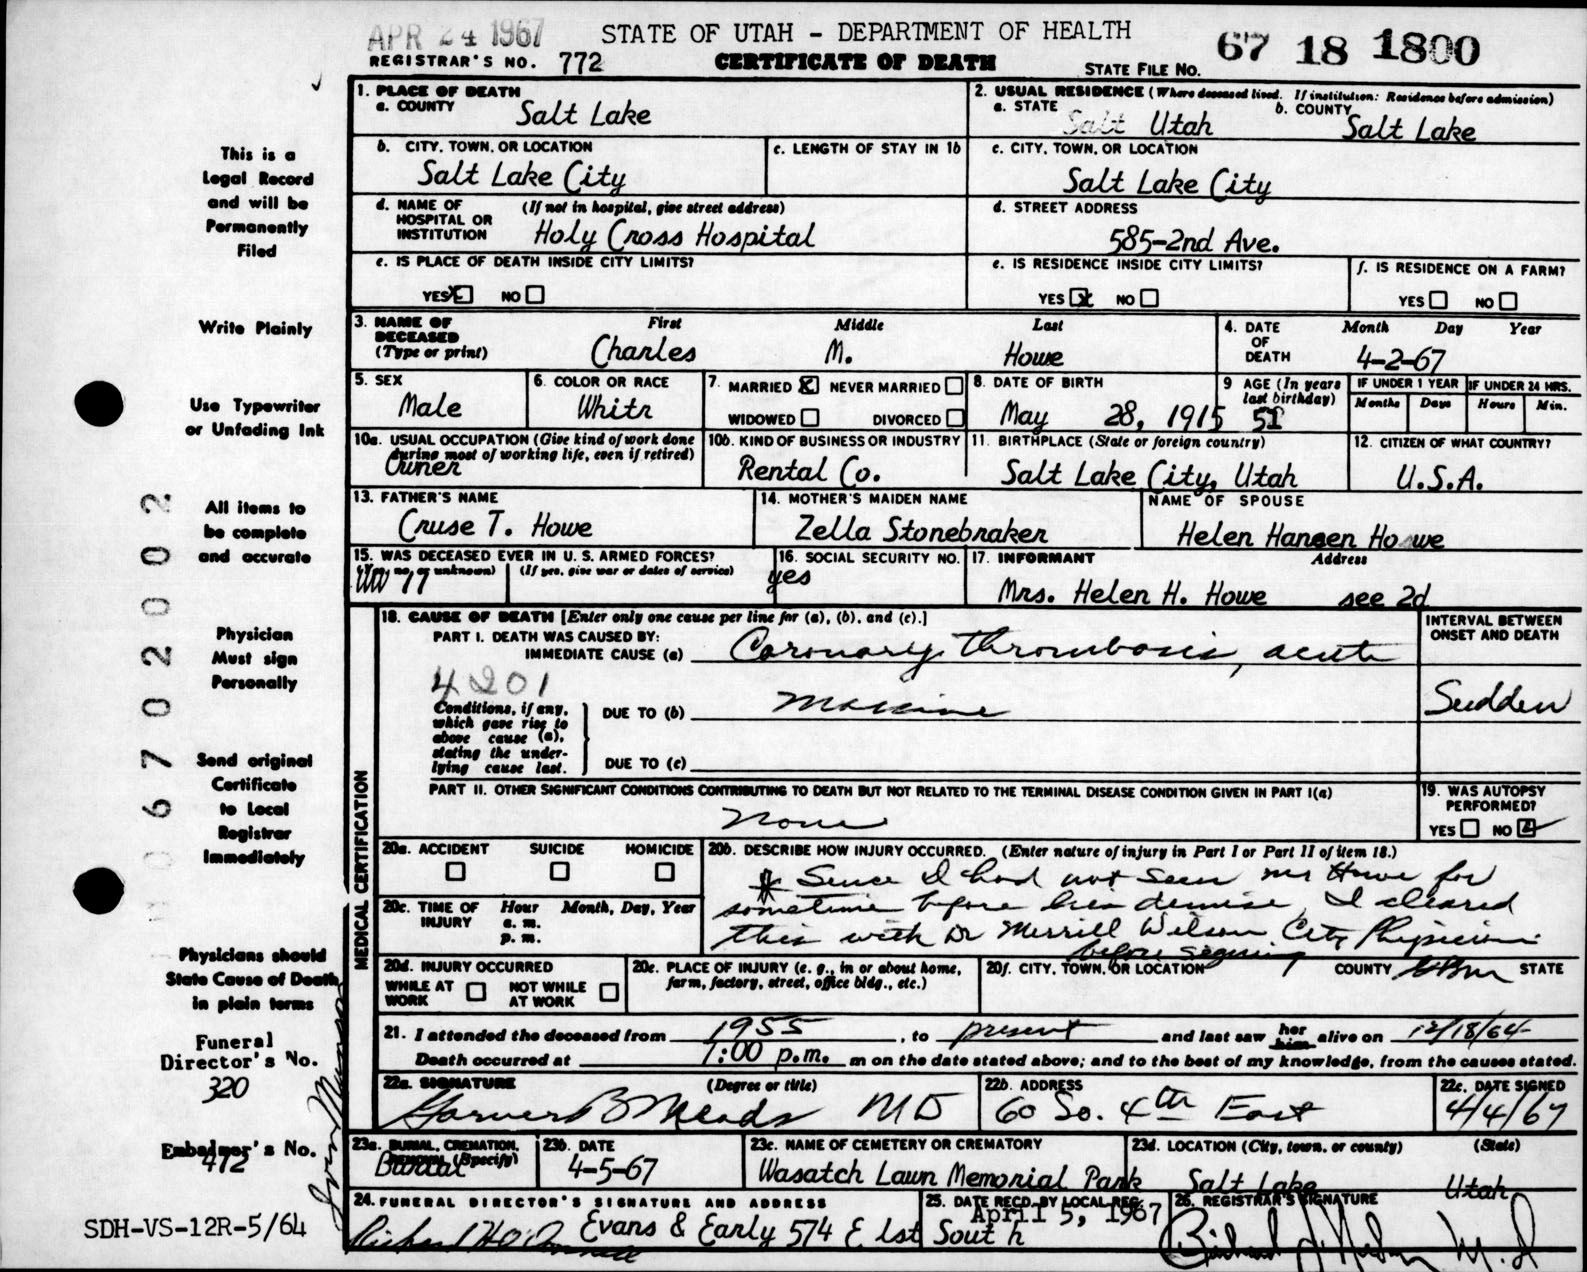 APR 24 1967
STATE OF UTAH - DEPARTMENT OF HEALTH
REGISTRAR'S NO. 772
CERTIFICATE OF DEATH
STATE FILE NO. 67 18 1800
This is a
Legal Record
and will be
Permanently
Filed
Write Plainly
Use Typewriter
or Unfading Ink
All items to
be complete
and accurate
Physician
Must sign
Personally
Send original
Certificate
to Local
Registrar
Immediately
Physicians should
State Cause of Death
in plain terms
Funeral
Director's No.
320
Embalmer's No.
412
SDH-VS-12R-5/64
6702002
1. PLACE OF DEATH
a. COUNTY Salt Lake
2. USUAL RESIDENCE (Where deceased lived. If institution: Residence before admission)
a. STATE Salt Utah b. COUNTY Salt Lake
b. CITY, TOWN, OR LOCATION Salt Lake City
c. LENGTH OF STAY IN 1b
c. CITY, TOWN, OR LOCATION Salt Lake City
d. NAME OF HOSPITAL OR INSTITUTION (If not in hospital, give street address)
Holy Cross Hospital
d. STREET ADDRESS
585-2nd Ave.
e. IS PLACE OF DEATH INSIDE CITY LIMITS?
YES X NO
e. IS RESIDENCE INSIDE CITY LIMITS?
YES X NO
f. IS RESIDENCE ON A FARM?
YES NO
3. NAME OF DECEASED (Type or print)
First Middle Last
Charles M. Howe
4. DATE OF DEATH Month Day Year
4-2-67
5. SEX Male
6. COLOR OR RACE Whitr
7. MARRIED X NEVER MARRIED
WIDOWED DIVORCED
8. DATE OF BIRTH
May 28, 1915
9 AGE (In years last birthday) 51
IF UNDER 1 YEAR Months Days
IF UNDER 24 HRS. Hours Min.
10a. USUAL OCCUPATION (Give kind of work done during most of working life, even if retired)
Owner
10b. KIND OF BUSINESS OR INDUSTRY
Rental Co.
11. BIRTHPLACE (State or foreign country)
Salt Lake City, Utah
12. CITIZEN OF WHAT COUNTRY?
U.S.A.
13. FATHER'S NAME
Cruse T. Howe
14. MOTHER'S MAIDEN NAME
Zella Stonebraker
NAME OF SPOUSE
Helen Hansen Howe
15. WAS DECEASED EVER IN U. S. ARMED FORCES?
(Yes, no, or unknown) (If yes, give war or dates of service)
16. SOCIAL SECURITY NO.
yes
17. INFORMANT Address
Mrs. Helen H. Howe see 2d
MEDICAL CERTIFICATION
18. CAUSE OF DEATH [Enter only one cause per line for (a), (b), and (c).]
PART I. DEATH WAS CAUSED BY:
IMMEDIATE CAUSE (a) Coronary thrombosis, acute
4201
Conditions, if any,
which gave rise to
above cause (a),
stating the under-
lying cause last.
DUE TO (b) massive
DUE TO (c)
INTERVAL BETWEEN ONSET AND DEATH
Sudden
PART II. OTHER SIGNIFICANT CONDITIONS CONTRIBUTING TO DEATH BUT NOT RELATED TO THE TERMINAL DISEASE CONDITION GIVEN IN PART I(a)
None
19. WAS AUTOPSY PERFORMED?
YES NO
20a. ACCIDENT SUICIDE HOMICIDE
20b. DESCRIBE HOW INJURY OCCURRED. (Enter nature of injury in Part I or Part II of item 18.)
* Since I had not seen Mr Howe for
sometime before his demise, I cleared
this with Dr Merrill Wilson City Physician
before signing
20c. TIME OF INJURY Hour Month, Day, Year
a. m.
p. m.
20d. INJURY OCCURRED
WHILE AT WORK NOT WHILE AT WORK
20e. PLACE OF INJURY (e. g., in or about home, farm, factory, street, office bldg., etc.)
20f. CITY, TOWN, OR LOCATION COUNTY STATE
21. I attended the deceased from 1955, to present and last saw her him alive on 12/18/64
Death occurred at 7:00 p.m. m on the date stated above; and to the best of my knowledge, from the causes stated.
22a. SIGNATURE (Degree or title)
Garner B Meads MD
22b. ADDRESS
60 So. 4th East
22c. DATE SIGNED
4/4/67
23a. BURIAL, CREMATION, REMOVAL (Specify)
Burial
23b. DATE
4-5-67
23c. NAME OF CEMETERY OR CREMATORY
Wasatch Lawn Memorial Park
23d. LOCATION (City, town, or county) (State)
Salt Lake Utah
24. FUNERAL DIRECTOR'S SIGNATURE AND ADDRESS
Evans & Early 574 E 1st South
25. DATE RECD. BY LOCAL REG.
April 5, 1967
26. REGISTRAR'S SIGNATURE